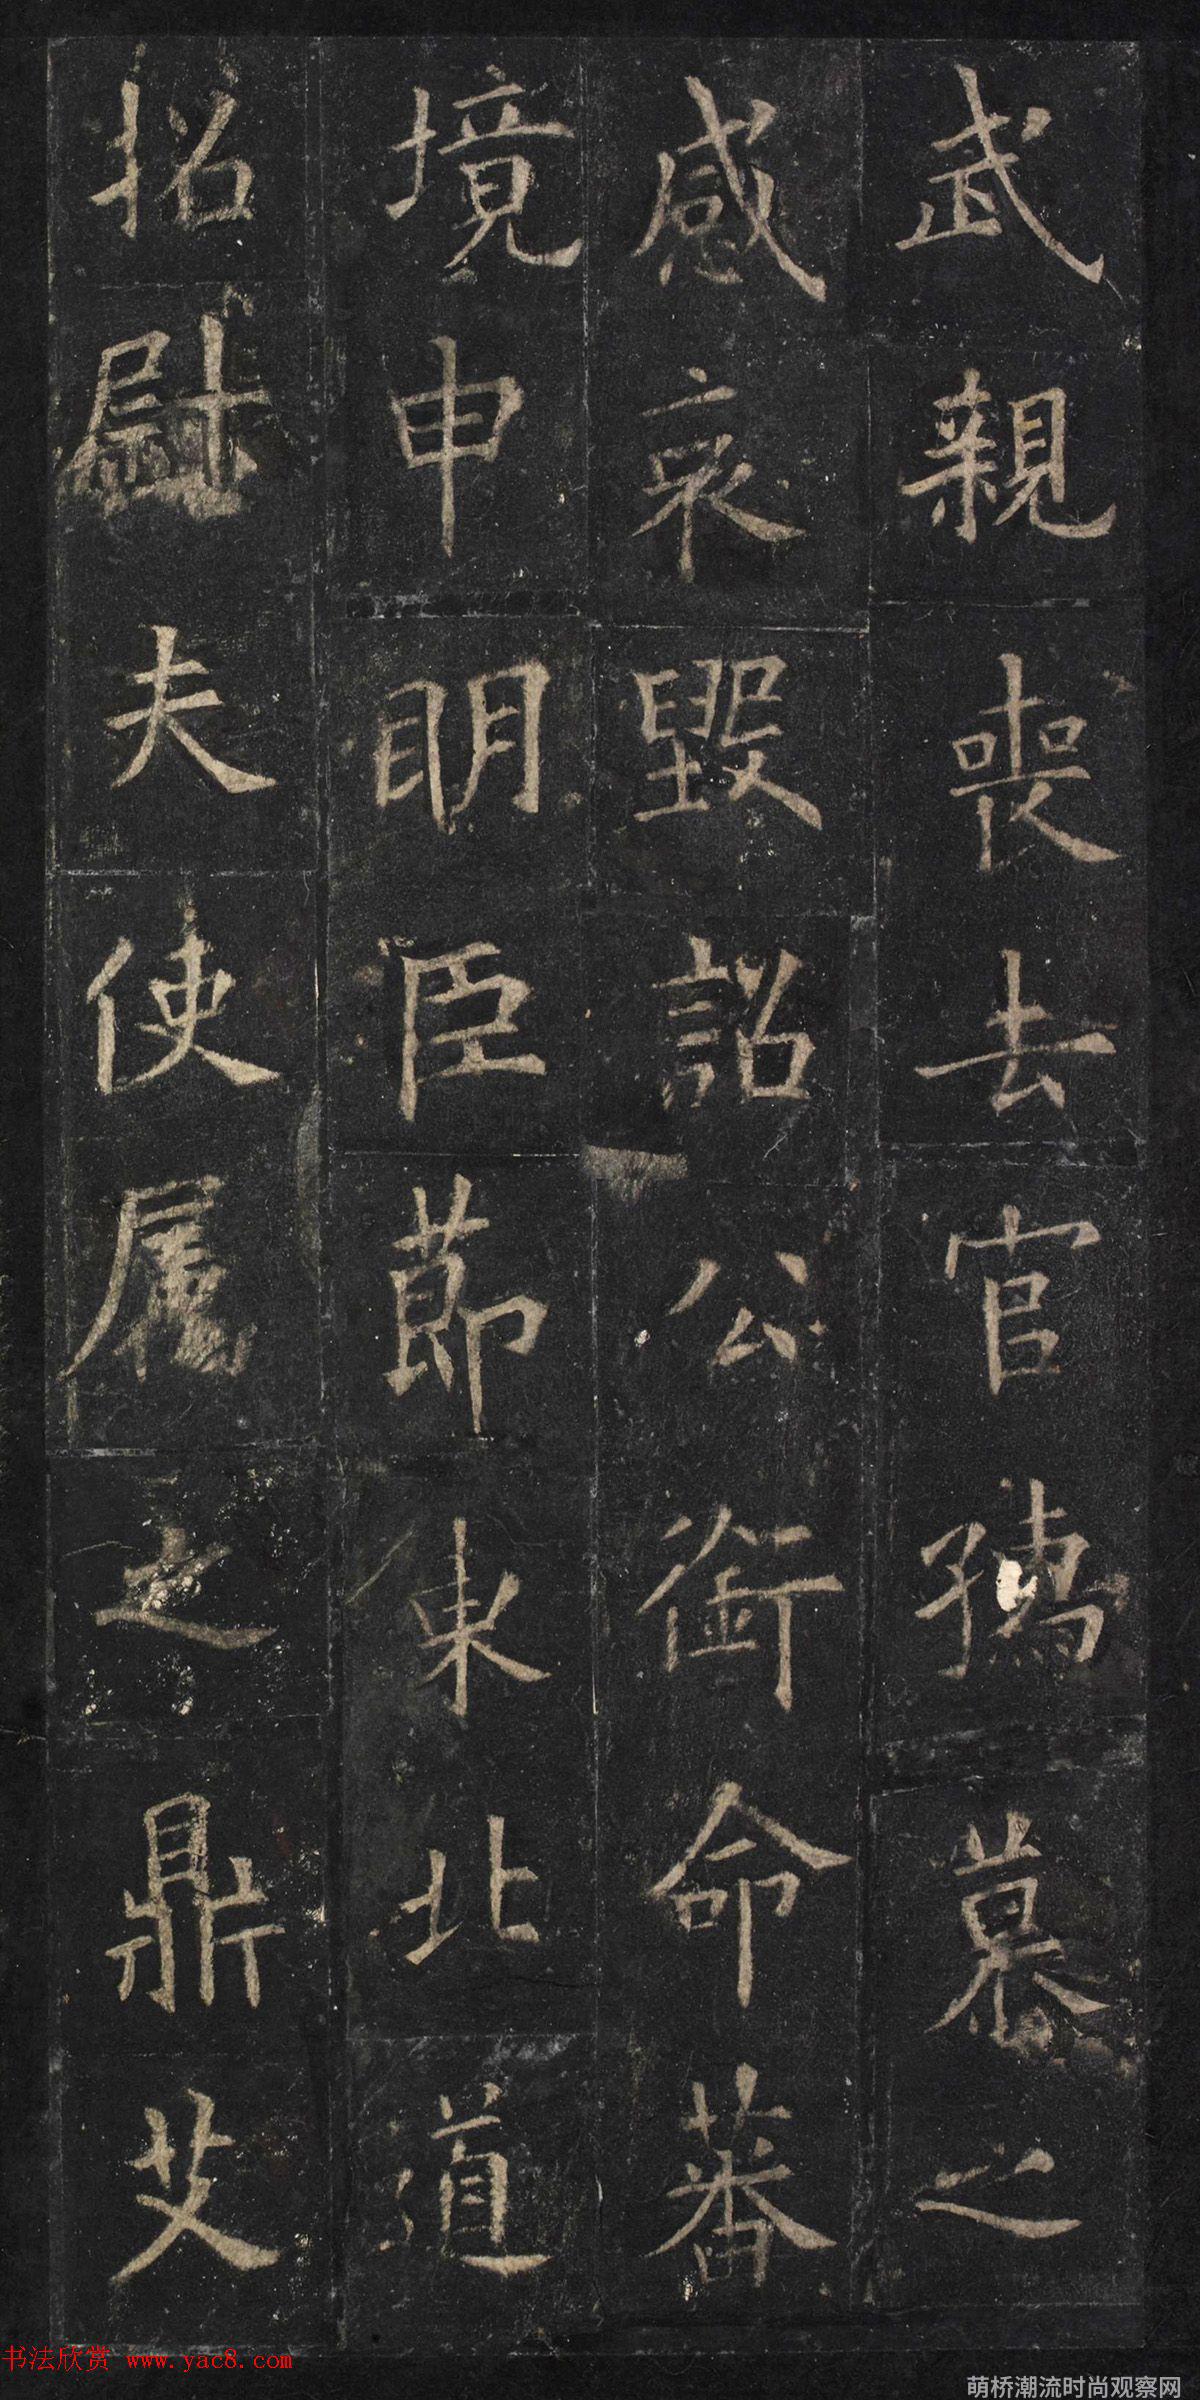 武親喪去官慕之
感哀毀詔公銜命蕃
境申明臣節東北道
招慰夫使屬之鼎艾
书法欣赏 www.yac8.com
萌桥潮流时尚观察网